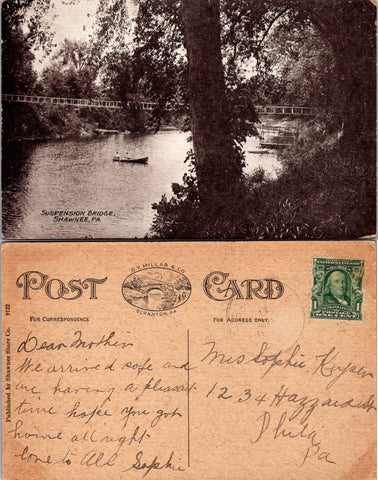 SUSPENSION BRIDGE,
SHAWNEE, PA.
POST CARD
D.V. MILLAR & CO.
SCRANTON, PA.
FOR CORRESPONDENCE
FOR ADDRESS ONLY.
9122
Published by Shawnee Store Co.
Dear Mother
We arrived safe and
are having a pleasant
time hope you got
home all right
love to All Sophie
Mrs Sophie Keyser
1234 Hazzard St
Phila
Pa
1 1